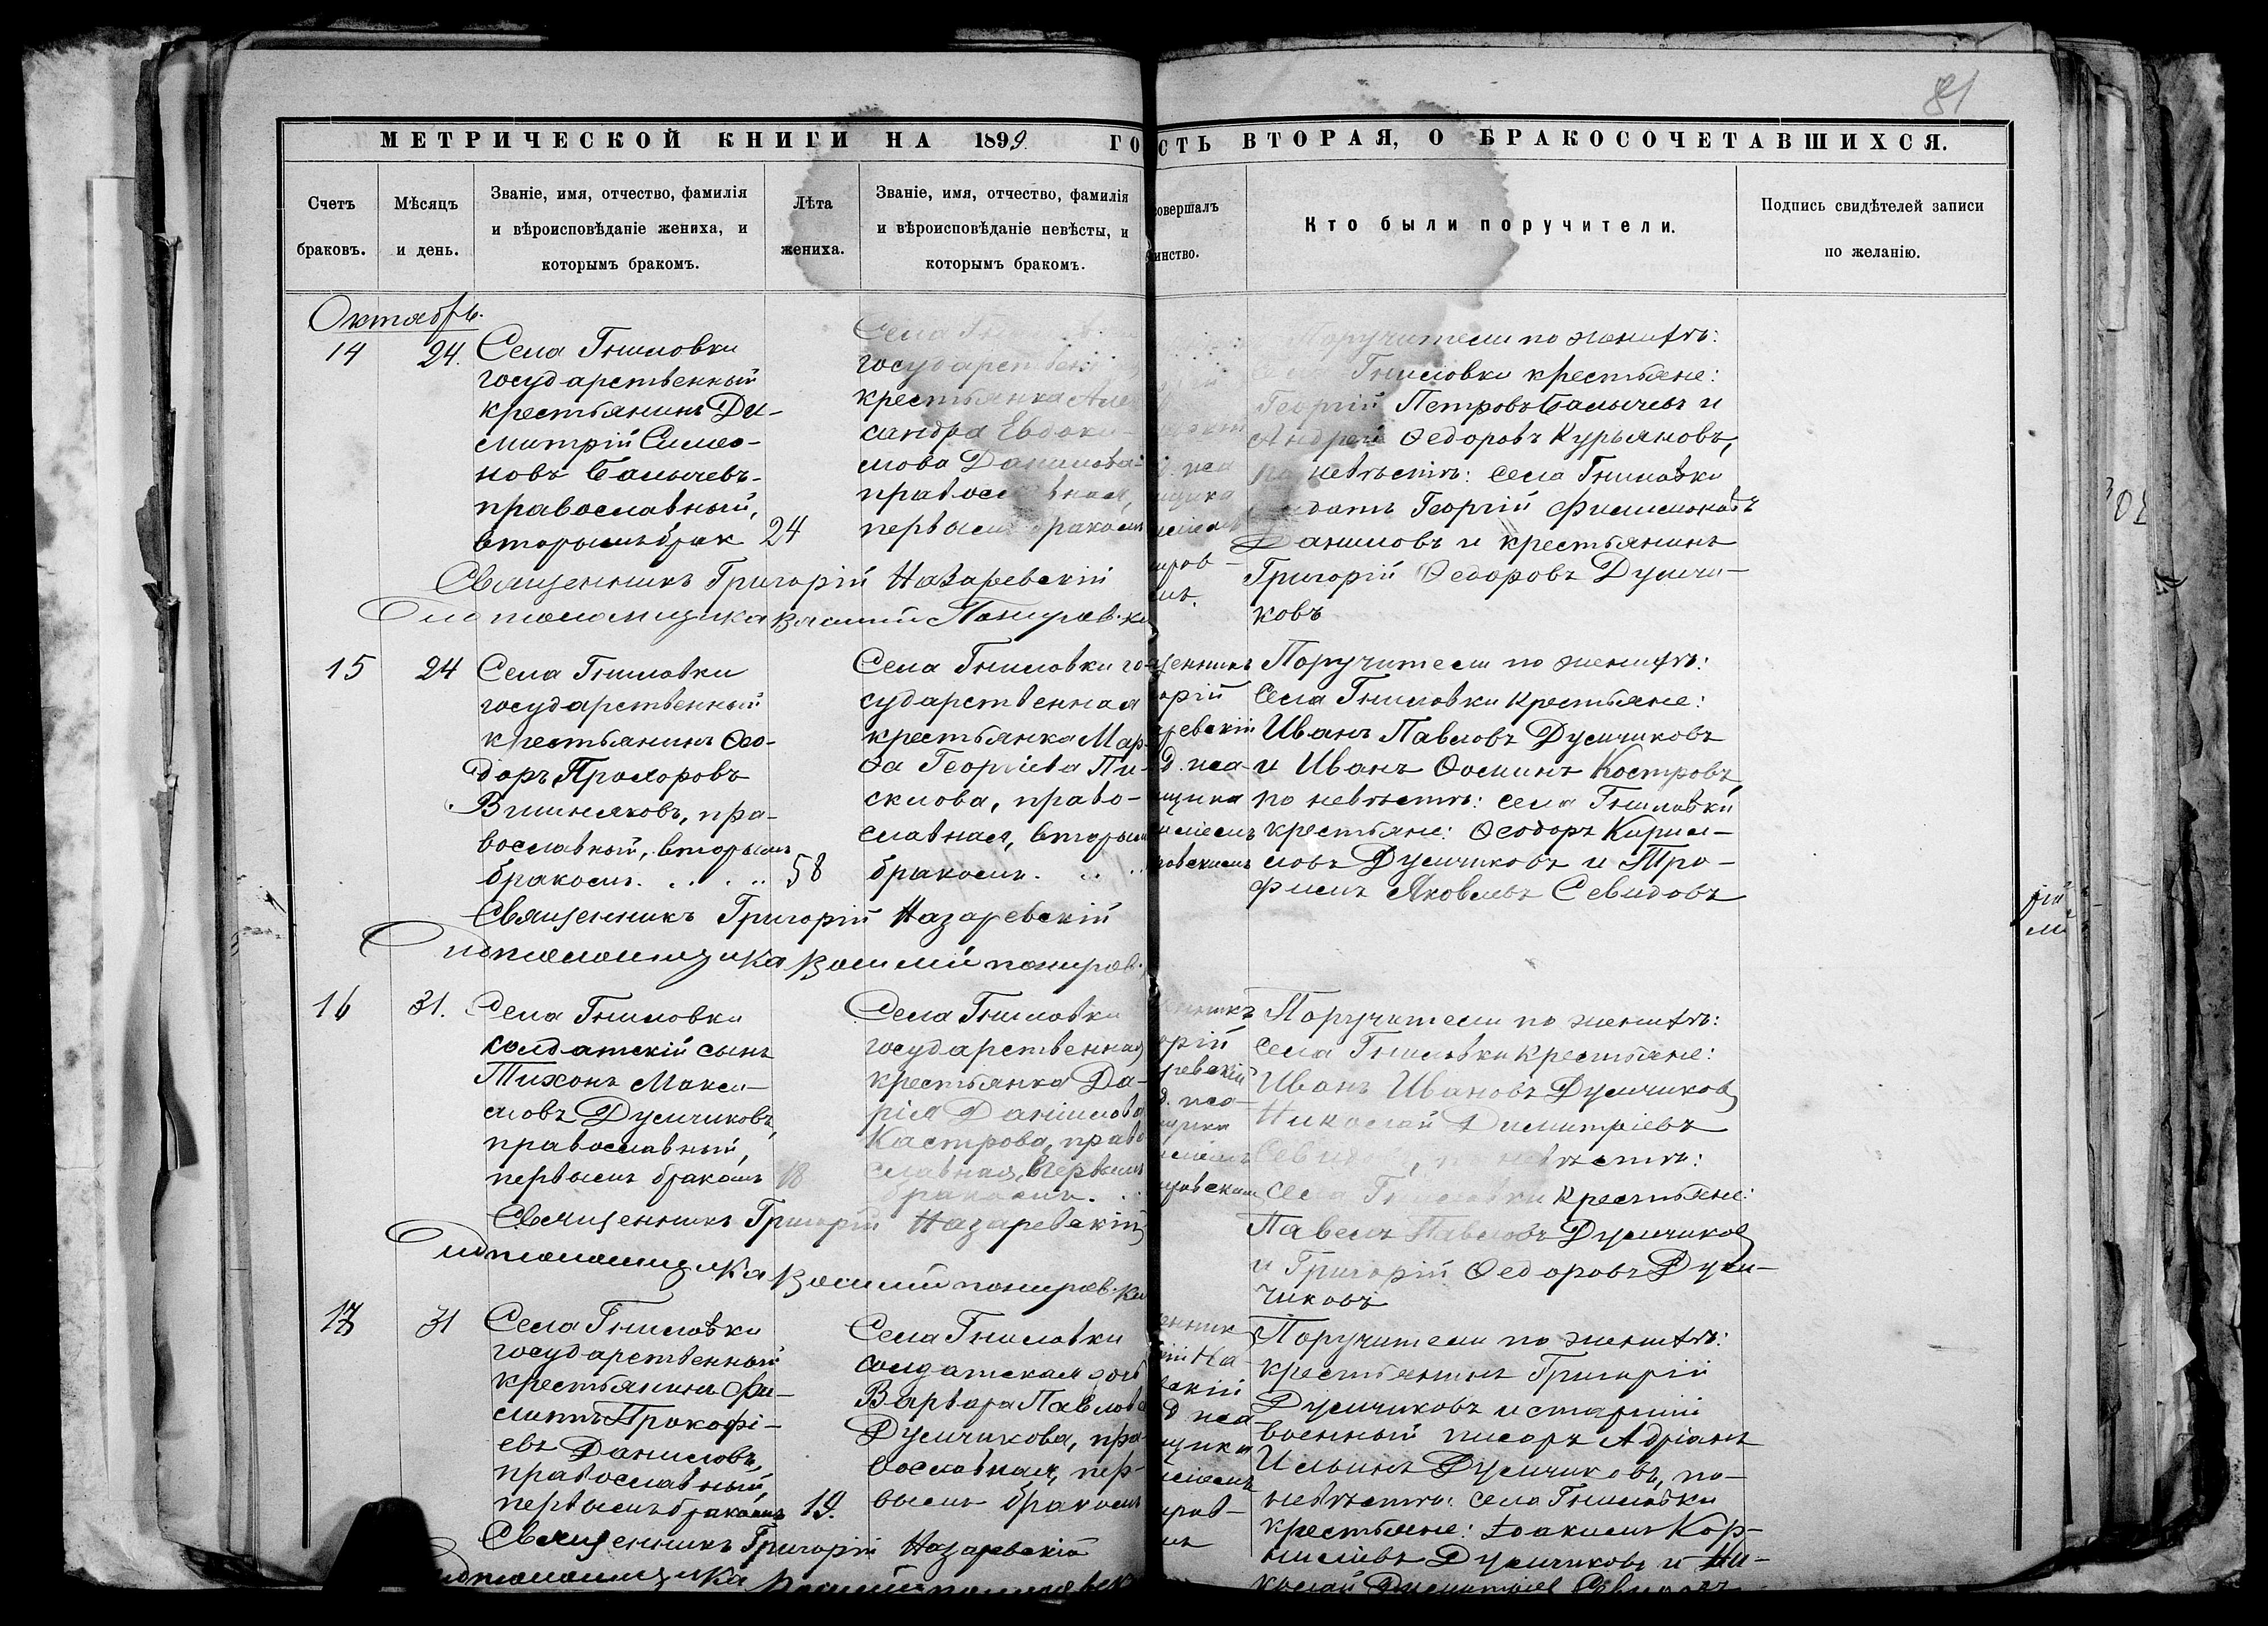 81
МЕТРИЧЕСКОЙ КНИГИ НА 1899 ГО
СТЬ ВТОРАЯ, О БРАКОСОЧЕТАВШИХСЯ.
Счетъ
браковъ.
Мѣсяцъ
и день.
Званіе, имя, отчество, фамилія
и вѣроисповѣданіе жениха, и
которымъ бракомъ.
Лѣта
жениха.
Званіе, имя, отчество, фамилія
и вѣроисповѣданіе невѣсты, и
которымъ бракомъ.
совершалъ
инство.
Кто были поручители.
Подпись свидѣтелей записи
по желанію.
Октябрь.
14
24.
Села Гниловки
государственный
крестьянинъ Ди-
митрій Симео-
новъ Балычевъ-
православный,
вторымъ брак
24
Села
государствен
крестьянка Алек
сандра Евдоки-
мова Данилова-
православная,
первымъ бракомъ
Поручители по женихѣ:
Гниловки крестьяне:
Георгій Петровъ Балычевъ и
Андрей Ѳедоровъ Курьяновъ,
по невѣстѣ: села Гниловки
Георгій Филимоновъ
Даниловъ и крестьянинъ
Григорій Ѳедоровъ Думчи-
ковъ
Священникъ Григорій Назаревскій
15
24
Села Гниловки
государственный
крестьянинъ Ѳео-
доръ Прохоровъ
Вишняковъ, пра-
вославный, вторымъ
бракомъ. . . . ..
58
Села Гниловки го-
сударственная
крестьянка Мар-
ѳа Георгіева Пи-
склова, право-
славная, вторым
бракомъ. .. ..
щенникъ
орій
ревскій
Д. пса-
мщика
Поручители по женихѣ:
Села Гниловки крестьяне:
Иванъ Павловъ Думчиковъ
и Иванъ Ѳоминъ Костровъ,
по невѣстѣ: села Гниловки
крестьяне: Ѳеодоръ Кирил-
ловъ Думчиковъ и Тро-
фимъ Яковлевъ Севидовъ
Священникъ Григорій Назаревскій
16
31.
Села Гниловки
солдатскій сынъ
Тихонъ Макси-
мовъ Думчиковъ,
православный,
первымъ бракомъ
18
Села Гниловки
государственная
крестьянка Да-
рія Данилова
Кастрова, право
славная, первымъ
бракомъ. ..
Поручители по женихѣ:
села Гниловки крестьяне:
Иванъ Ивановъ Думчиков
Николай Димитріевъ
по невѣстѣ:
села Гниловки крестьяне:
Павелъ Павловъ Думчиков
и Григорій Ѳедоровъ Дум-
чиковъ
Священникъ Григорій Назаревскій
17
31
Села Гниловки
государственный
крестьянинъ Фи-
липпъ Прокофі-
евъ Даниловъ,
православный,
первымъ бракомъ
19.
Села Гниловки
солдатская дочь
Варвара Павлова
Думчикова, пра-
вославная, пер-
вымъ бракомъ
Поручители по женихѣ:
крестьянинъ Григорій
Думчиковъ и старшій
военный писарь Адріанъ
Ильинъ Думчиковъ, по-
невѣстѣ: села Гниловки
крестьяне: Іоакимъ Кор-
ниліевъ Думчиковъ и Ни-
колай
Священникъ Григорій Назаревскій